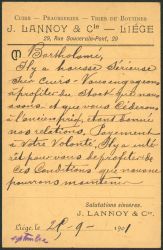 CUIRS – PEAUSSERIES – TIGES DE BOTTINES
J. LANNOY & Cie — LIÉGE
29, Rue Souverain-Pont, 29
M Bartholomé,
Il y a hausse sérieuse
sur Cuirs - Vous engageons
à profiter du Stock que nous
avons et que vous Céderons
à l'ancien prix, étant donné
nos relations. Payement
à Votre Volonté, Il y a inté
rêt pour vous de profiter de
Ces Conditions que nous ne
pouvons maintenir
Salutations sincères.
J. LANNOY & Cie.
Liége, le 25 - 9 - 1901
septembre